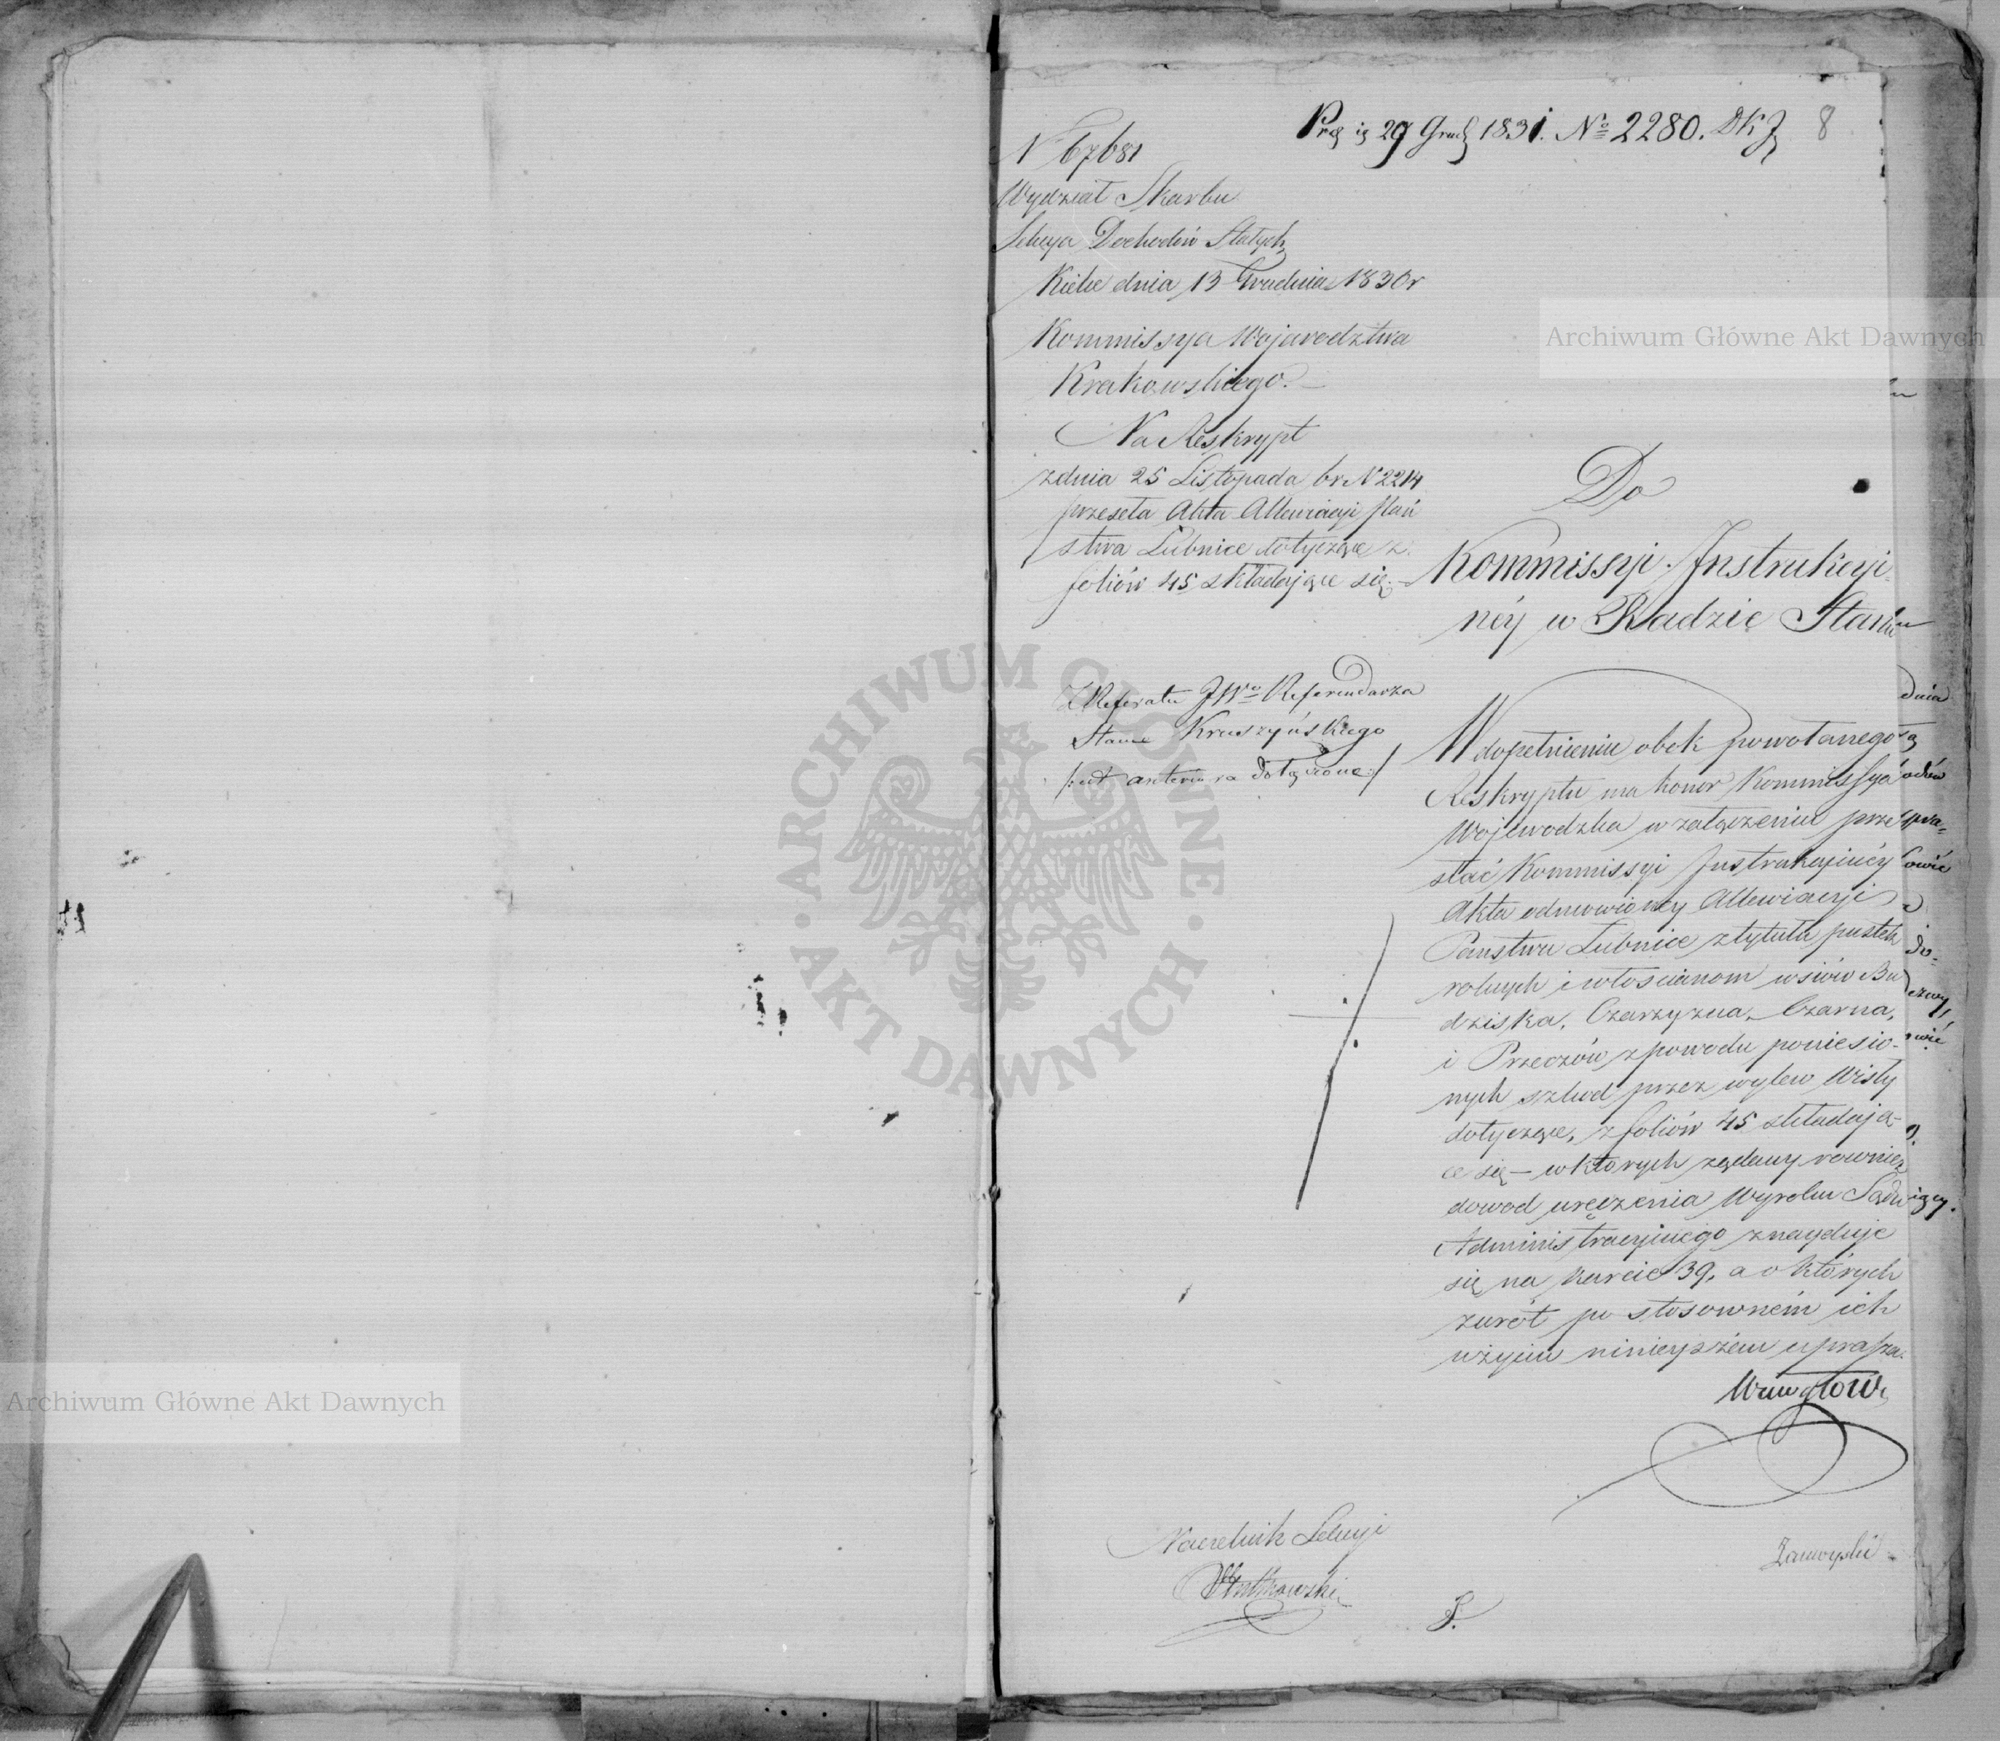 29 1831. Nº 2280. 8
N 67681
Wydział Skarbu
Sekcya Dochodów Stałych
Kielce dnia 13 Grudnia 1830 r
Kommissya Województwa
Krakowskiego.
Na Reskrypt
z dnia 25 Listopada br N 2214
przeseła Akta Allewiacyi Pań
stwa Łubnice dotyczące z
foliów 45 składające się.
Z Referatu JWo Referendarza
Stanu Kruszyńskiego
/: ad anteriora dołączone :/
Do
Kommissyi Instrukcyi
néy w Radzie Stanu
W dopełnieniu obok powołanego
Reskryptu ma honor Kommissya
Wojewodzka w załączeniu prze
słać Kommissyi Instrukcyinéy
Akta odmowioney Allewiacyi
Państwu Łubnice z tytułu pustek
rolnych i włoscianom wsiów Bu
dziska, Czarzyzna, Czarna,
i Przeczów z powodu poniesio-
nych szkod przez wylew Wisły
dotyczące, z foliów 45 składają-
ce się – w których żądany rownież
dowod uręczenia Wyroku Sądu
Administracyinego znayduje
się na karcie 39, a o których
zwrót po stosowném ich
użyciu ninieyszém uprasza.
Naczelnik Sekcyi
Zamoyski
Archiwum Główne Akt Dawnych
Archiwum Główne Akt Dawnych
ARCHIWUM GŁÓWNE AKT DAWNYCH